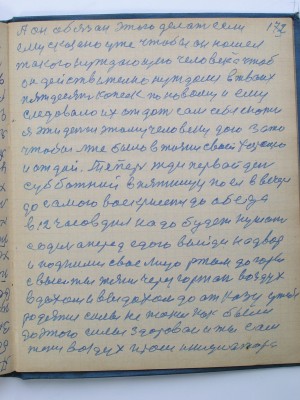 172
А он обязан этого делат если
ему сказано уже чтобы он нашел
такого нуждающую человека чтоб
он действительно нуждался в твоих
пятдесять копеек по новому и ему
следовало их отдат сам себе скажи
я эти денги этому человеку даю за то
чтобы мне было в жизни своей хорошо
и отдай. Теперь жди первой ден
субботний в пятницу поел в вечери
до самого воскрисения до обеда
в 12 часов дня надо будет кушат
а один перед едою выйди на двор
и подними свое лицо ртом до горы
с высоты тяни через гортан воздух
вдохом и выдохом до отказу
родятся силы не такие как были
до этого силы здоровая и ты сам
тяни воздух и проси